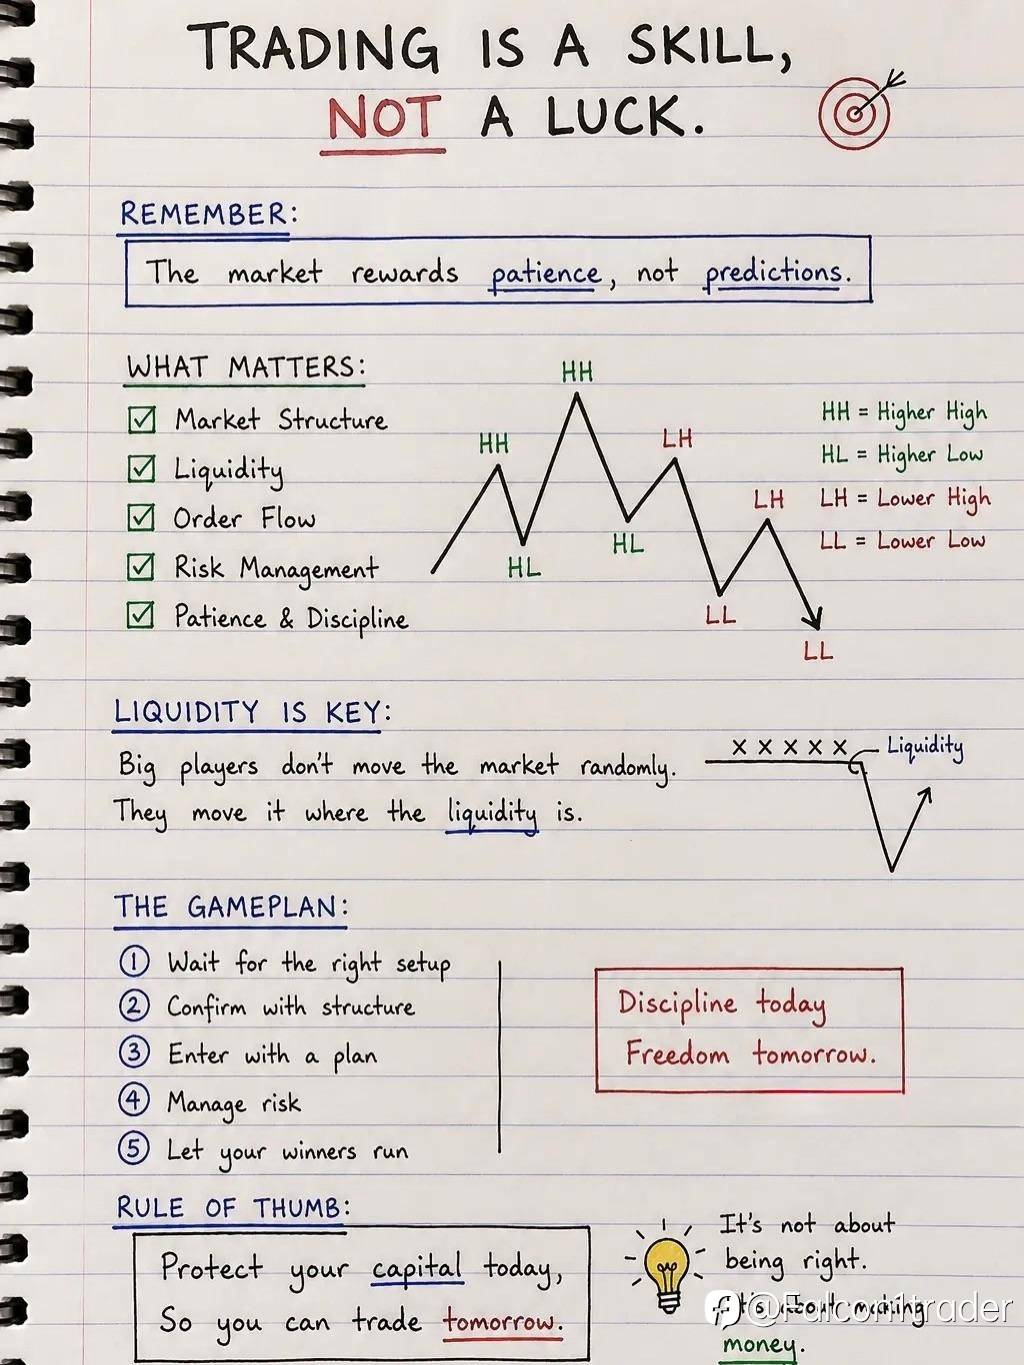 TRADING IS A SKILL,
NOT A LUCK.
REMEMBER:
The market rewards patience, not predictions.
WHAT MATTERS:
Market Structure
Liquidity
Order Flow
Risk Management
Patience & Discipline
HH
HH
LH
LH
HL
HL
LL
LL
HH = Higher High
HL = Higher Low
LH = Lower High
LL = Lower Low
LIQUIDITY IS KEY:
Big players don't move the market randomly.
They move it where the liquidity is.
x x x x x Liquidity
THE GAMEPLAN:
1 Wait for the right setup
2 Confirm with structure
3 Enter with a plan
4 Manage risk
5 Let your winners run
Discipline today
Freedom tomorrow.
RULE OF THUMB:
Protect your capital today,
So you can trade tomorrow.
It's not about
being right.
It's about making
money.
@Falcon1trader